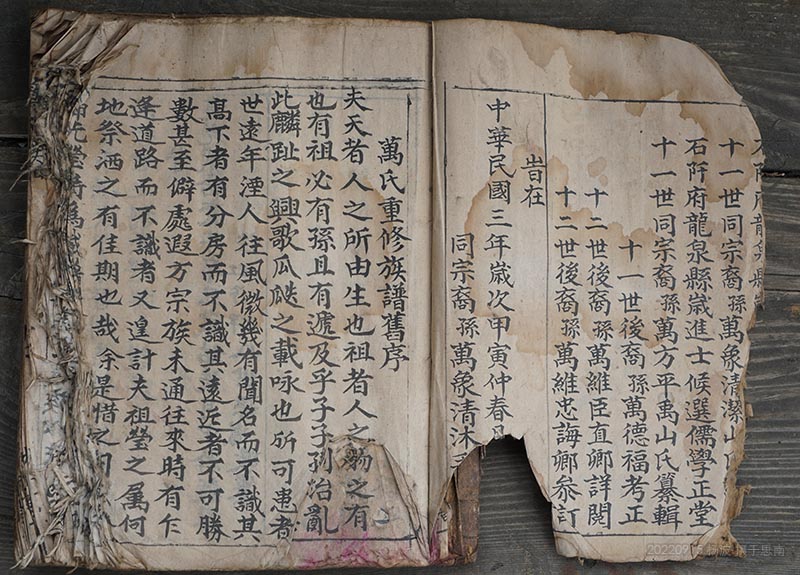 十一世同宗裔孫萬象清潔山氏
石阡府龍泉縣歲進士候選儒學正堂
十一世同宗裔孫萬方平禹山氏纂輯
十一世後裔孫萬德福考正
十二世後裔孫萬維臣直卿詳閱
十二世後裔孫萬維忠誨卿參訂
旹在
中華民國三年歲次甲寅仲春月
同宗裔孫萬象清沐
萬氏重修族譜舊序
夫天者人之所由生也祖者人之
之有
也有祖必有孫且有遞及乎子子孫
治亂
此麟趾之興歌瓜瓞之載咏也所可患者
世遠年湮人往風微幾有聞名而不識其
高下者有分房而不識其遠近者不可勝
數甚至僻處遐方宗族未通往來時有乍
逢道路而不識者又遑計夫祖塋之属何
地祭洒之有佳期也哉余是惜之
20220915
于思南